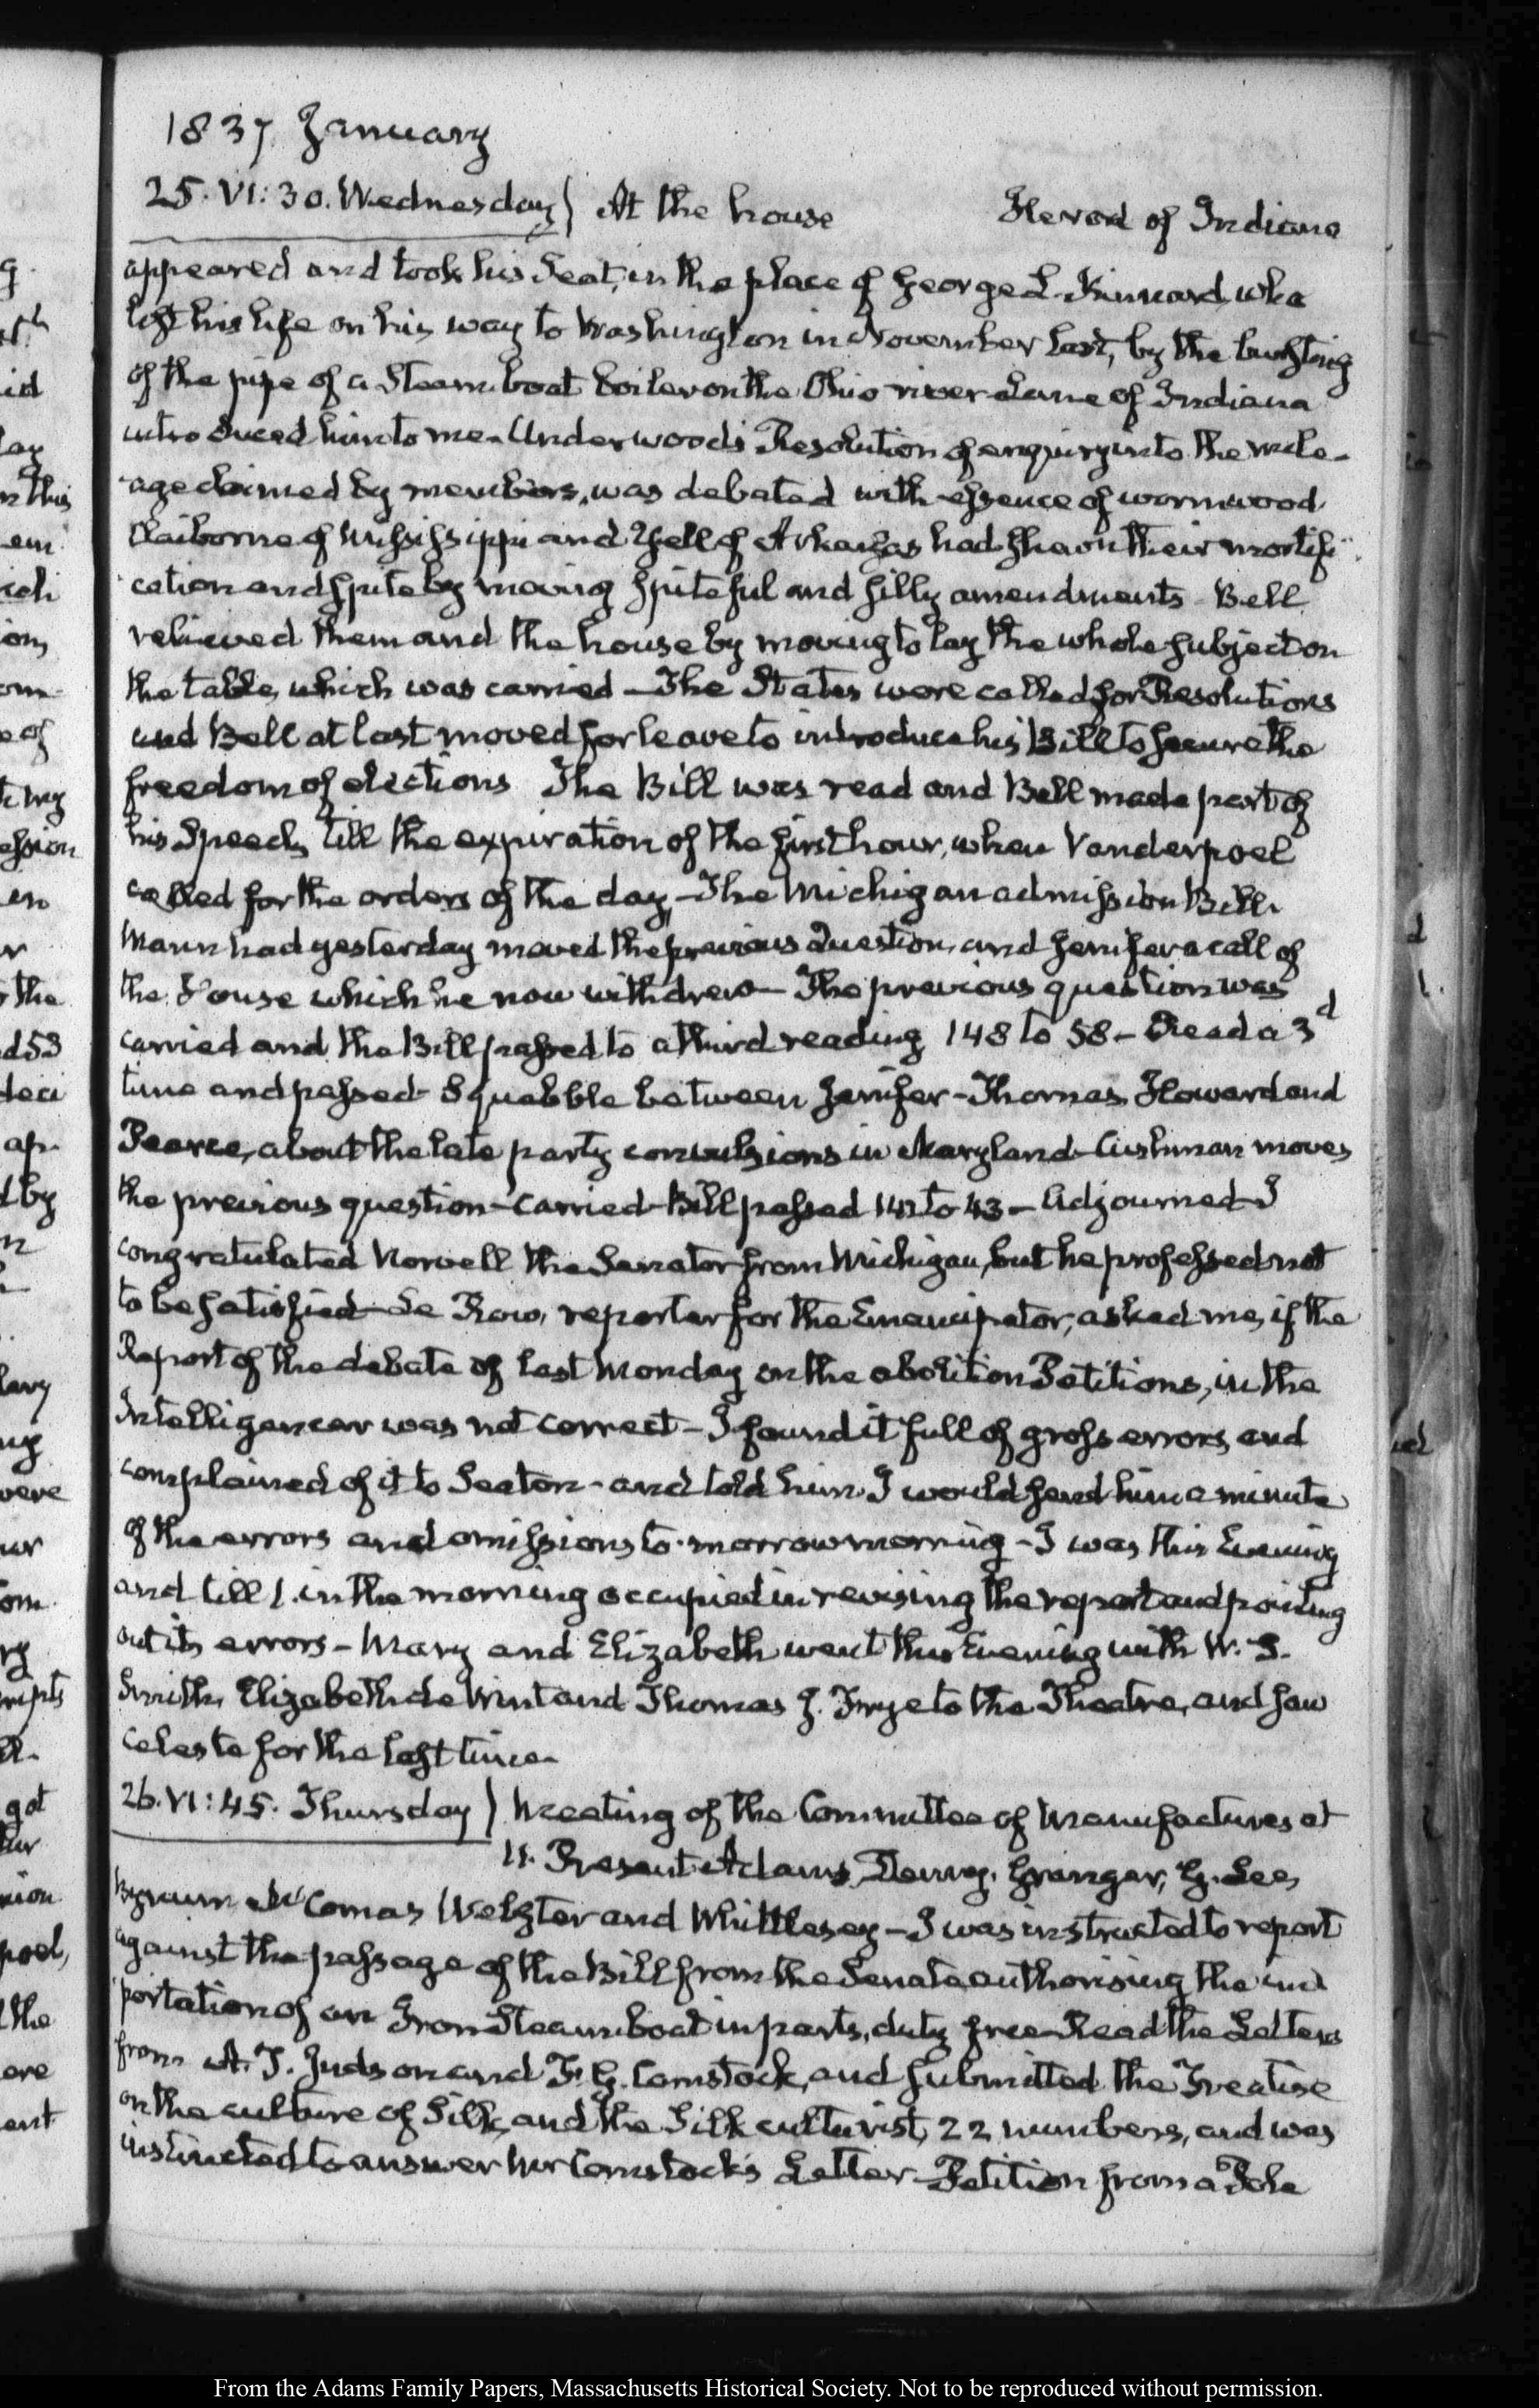 1837 January
25. VI:30. Wednesday) At the house Herod of Indiana
appeared and took his Seat, in the place of George L. Kinnard, who
lost his life on his way to Washington in November last, by the bursting
of the pipe of a Steam-boat boiler on the Ohio river - Lane of Indiana
introduced him to me - Underwood's Resolution of enquiry into the mile-
age claimed by members, was debated with essence of wormwood
Claiborne of Mississippi and Yell of Arkansas had shown their mortifi-
cation and spite by moving spiteful and silly amendments - Bell
relieved them and the house by moving to lay the whole subject on
the table, which was carried - The States were called for Resolutions
and Bell at last moved for leave to introduce his Bill to secure the
freedom of elections The Bill was read and Bell made part of
his Speech, till the expiration of the first hour, when Vanderpoel
called for the orders of the day, - The Michigan admission Bill.
Mann had yesterday moved the previous Question, and Jenifer a call of
the House which he now withdrew - The previous question was
carried and the Bill passed to a third reading 148 to 58 - Read a 3d
time and passed - Squabble between Jenifer - Thomas Howard and
Pearce, about the late party convulsions in Maryland - Cushman moves
the previous question - Carried - Bill passed to 43 - Adjourned - I
congratulated Norvell the Senator from Michigan, but he professed not
to be satisfied - Le Row, reporter for the Emancipator, asked me, if the
Report of the debate of last Monday on the abolition Petitions, in the
Intelligencer was not correct - I found it full of gross errors and
complained of it to Seaton - and told him I would send him a minute
of the errors and omissions to-morrow morning - I was this Evening
and till 1. in the morning occupied in revising the report and pointing
out its errors - Mary and Elizabeth went this Evening with W. S.
Smith, Elizabeth de Wint and Thomas J. Frye to the Theatre, and saw
Celeste for the last time -
26. VI:45. Thursday) Meeting of the Committee of Manufactures at
11. Present Adams, Denny, Granger, G. Lee,
Bynum McComas Webster and Whittlesey - I was instructed to report
against the passage of the Bill from the Senate authorising the im
portation of an Iron Steam-boat in parts, duty free - Read the Letters
from A. T. Judson and F. G. Comstock, and submitted the Treatise
on the culture of Silk, and the Silk culturist, 22 numbers, and was
instructed to answer Mr Comstock's Letter - Petition from a Pole
From the Adams Family Papers, Massachusetts Historical Society. Not to be reproduced without permission.